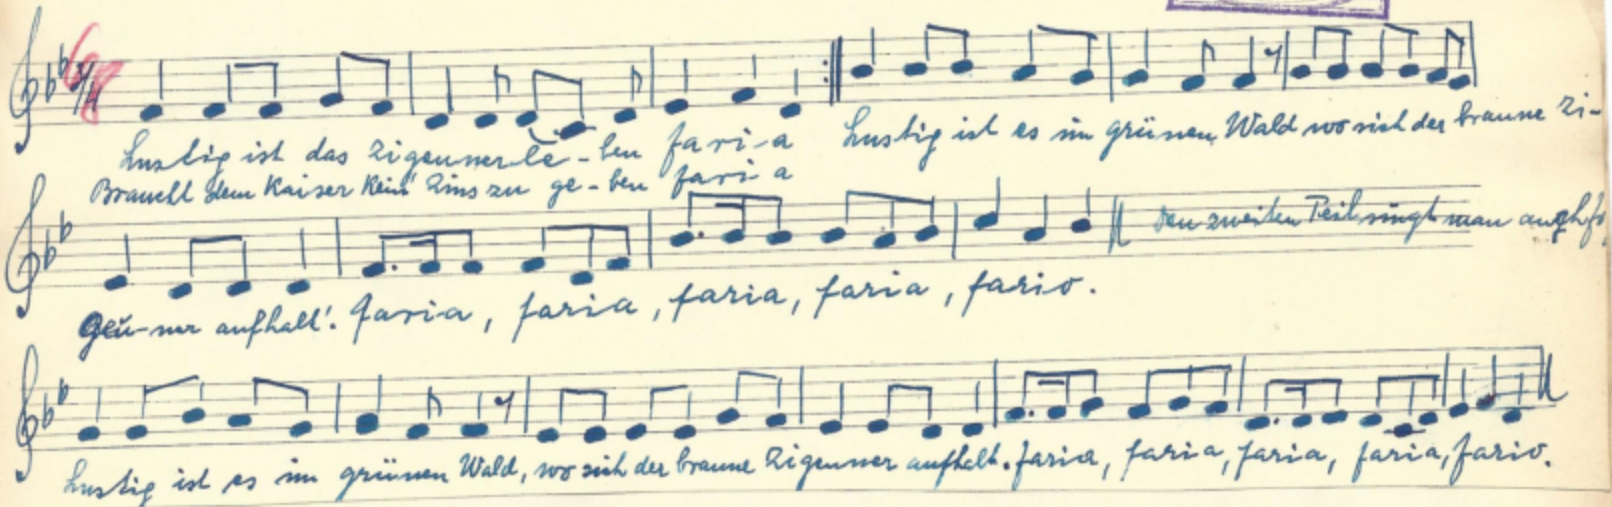 6/8 3/4
Lustig ist das Zigeunerle-ben faria Lustig ist es im grünen Wald wo sich der braune Zi-
Braucht dem Kaiser kein Zins zu ge-ben faria
Den zweiten Teil singt man auch so.
geu-ner aufhalt'. faria, faria, faria, faria, fario.
Lustig ist es im grünen Wald, wo sich der braune Zigeuner aufhalt. faria, faria, faria, faria, fario.